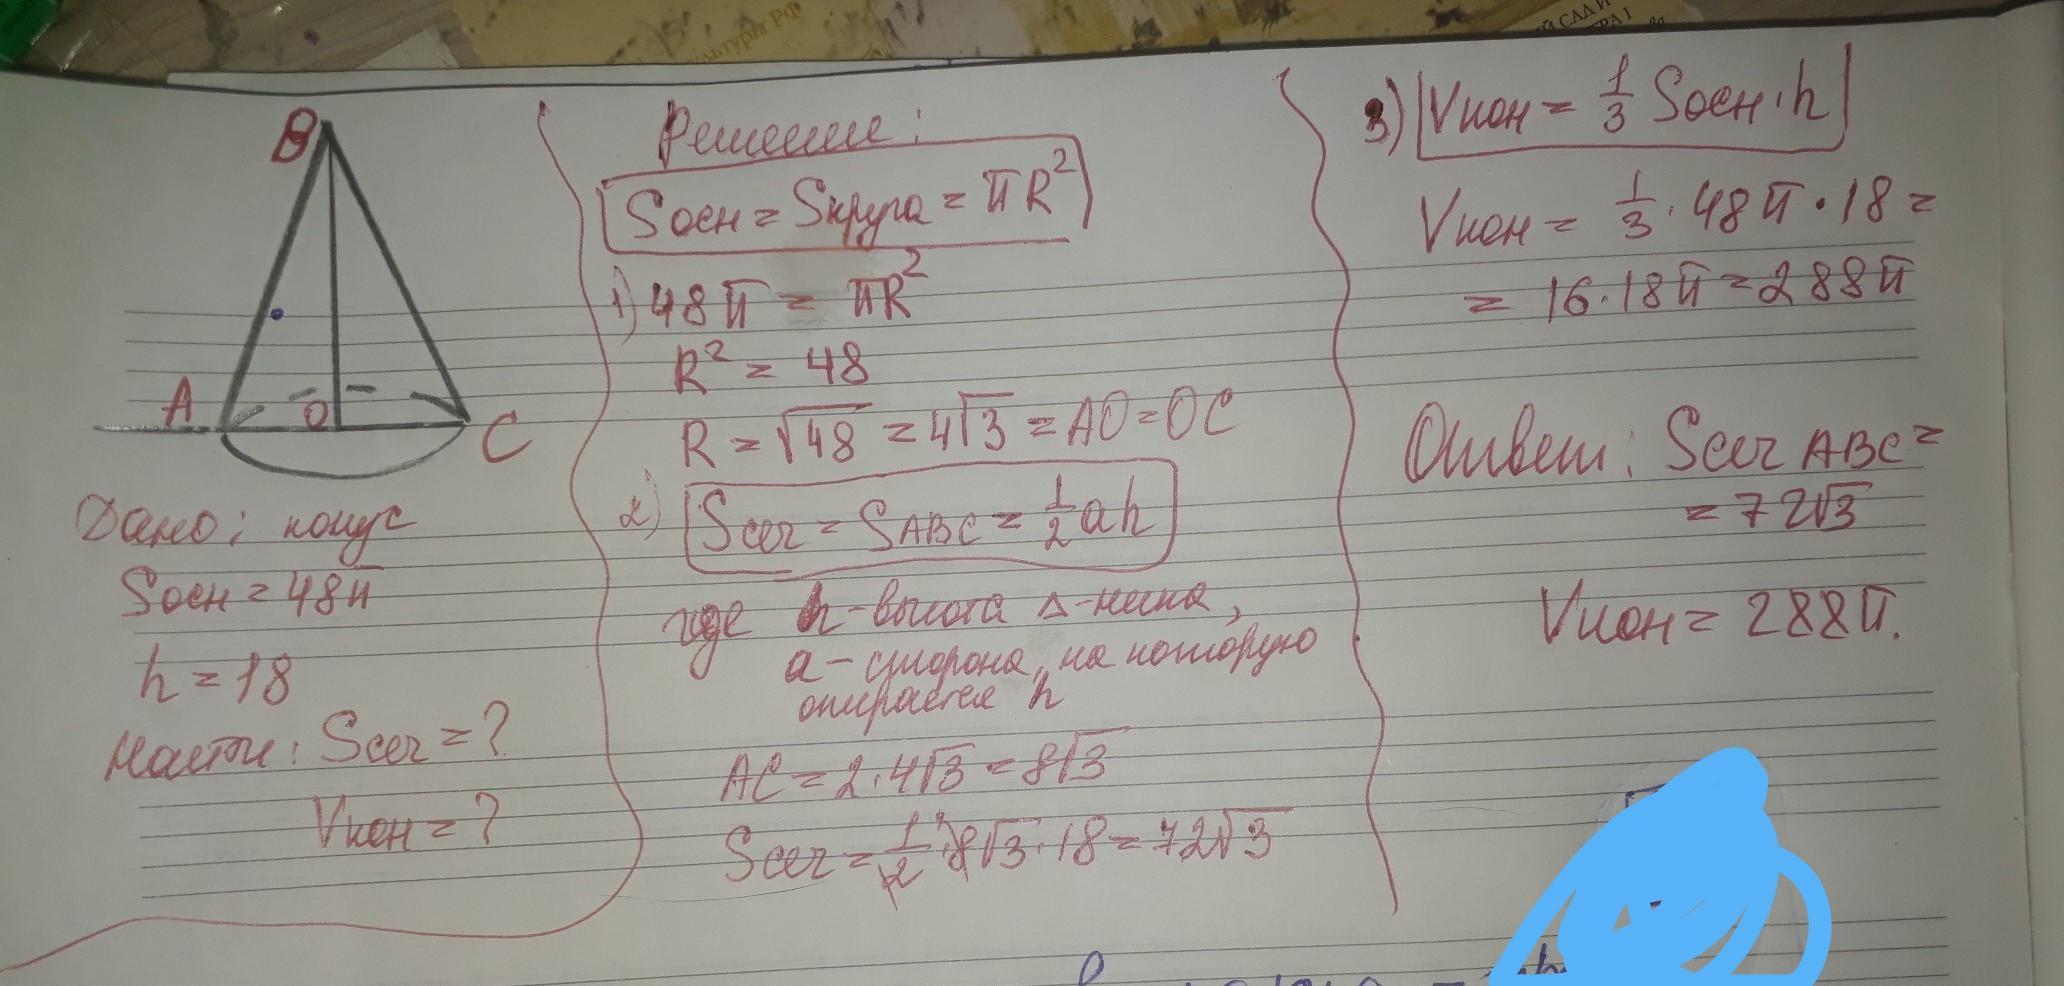 культуры РФ
B
A
O
C
Дано: конус
Sосн = 48π
h = 18
Найти: Sсеч = ?
Vкон = ?
Решение:
Sосн = Sкруга = πR²
1) 48π = πR²
R² = 48
R = √48 = 4√3 = AO = OC
2) Sсеч = SABC = 1/2 ah
где h - высота Δ-ника,
a - сторона, на которую
опирается h
AC = 2·4√3 = 8√3
Sсеч = 1/2·8√3·18 = 72√3
3) Vкон = 1/3 Sосн·h
Vкон = 1/3·48π·18 =
= 16·18π = 288π
Ответ: Sсеч ABC =
= 72√3
Vкон = 288π.